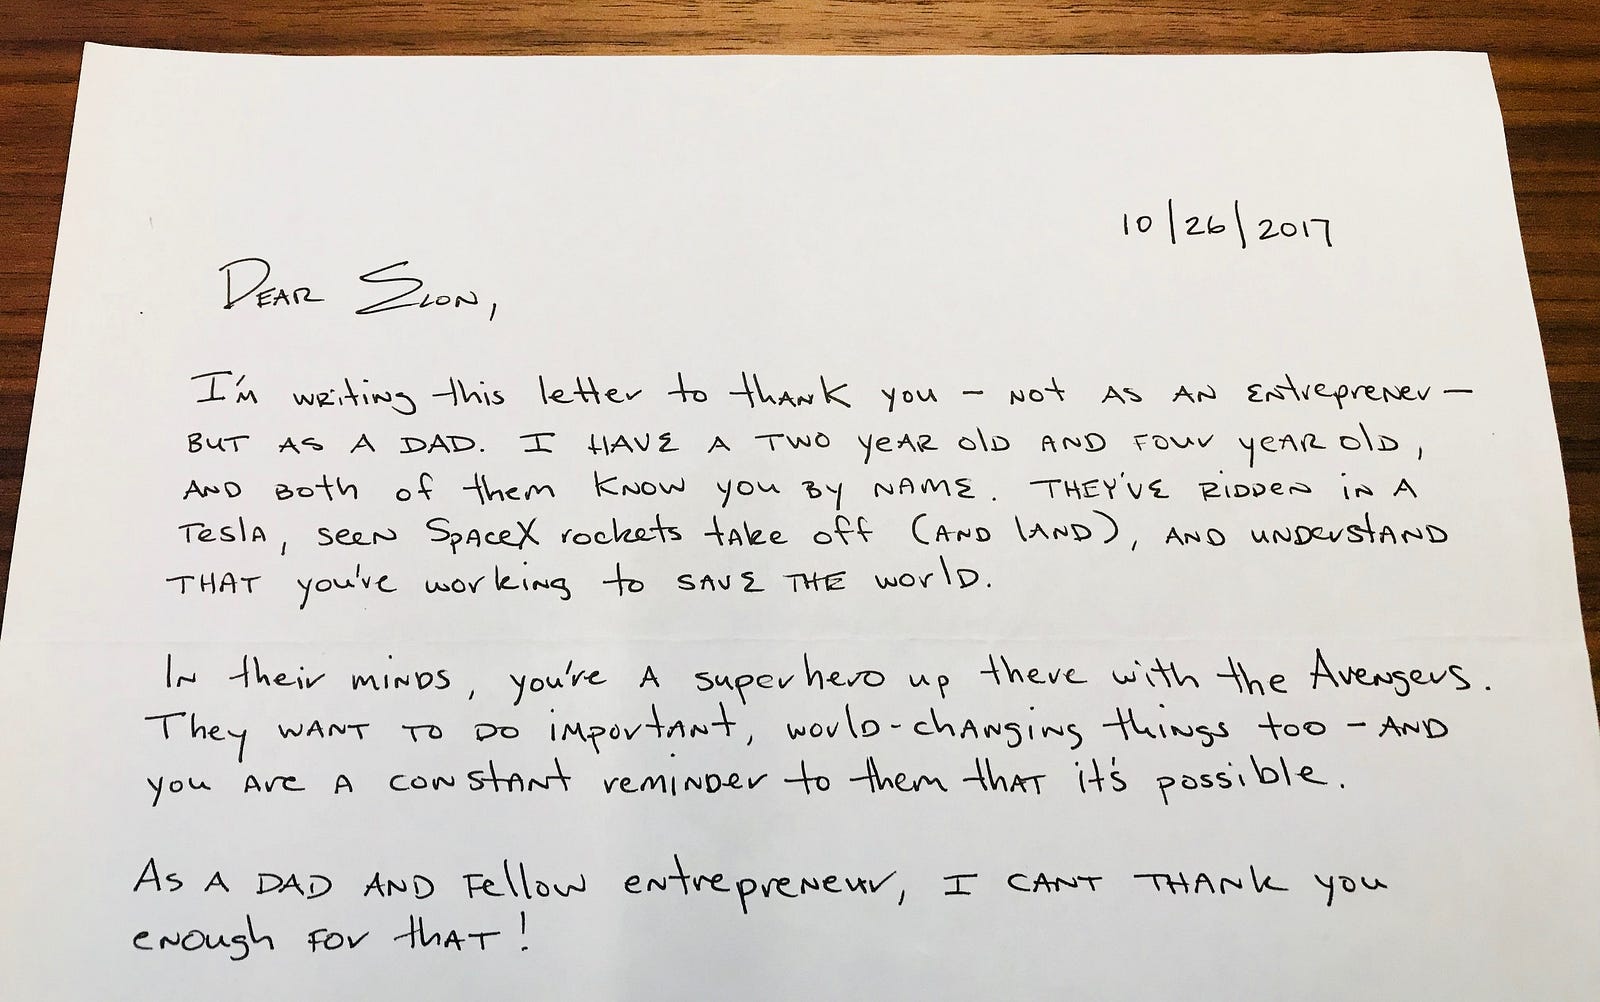 10/26/2017
Dear Elon,
I'm writing this letter to thank you - not as an entreprener -
but as a dad. I have a two year old and four year old,
and both of them know you by name. They've ridden in a
Tesla, seen SpaceX rockets take off (and land), and understand
that you've working to save the world.
In their minds, you're a superhero up there with the Avengers.
They want to do important, world-changing things too - and
you are a constant reminder to them that it's possible.
As a dad and fellow entrepreneur, I cant thank you
enough for that!